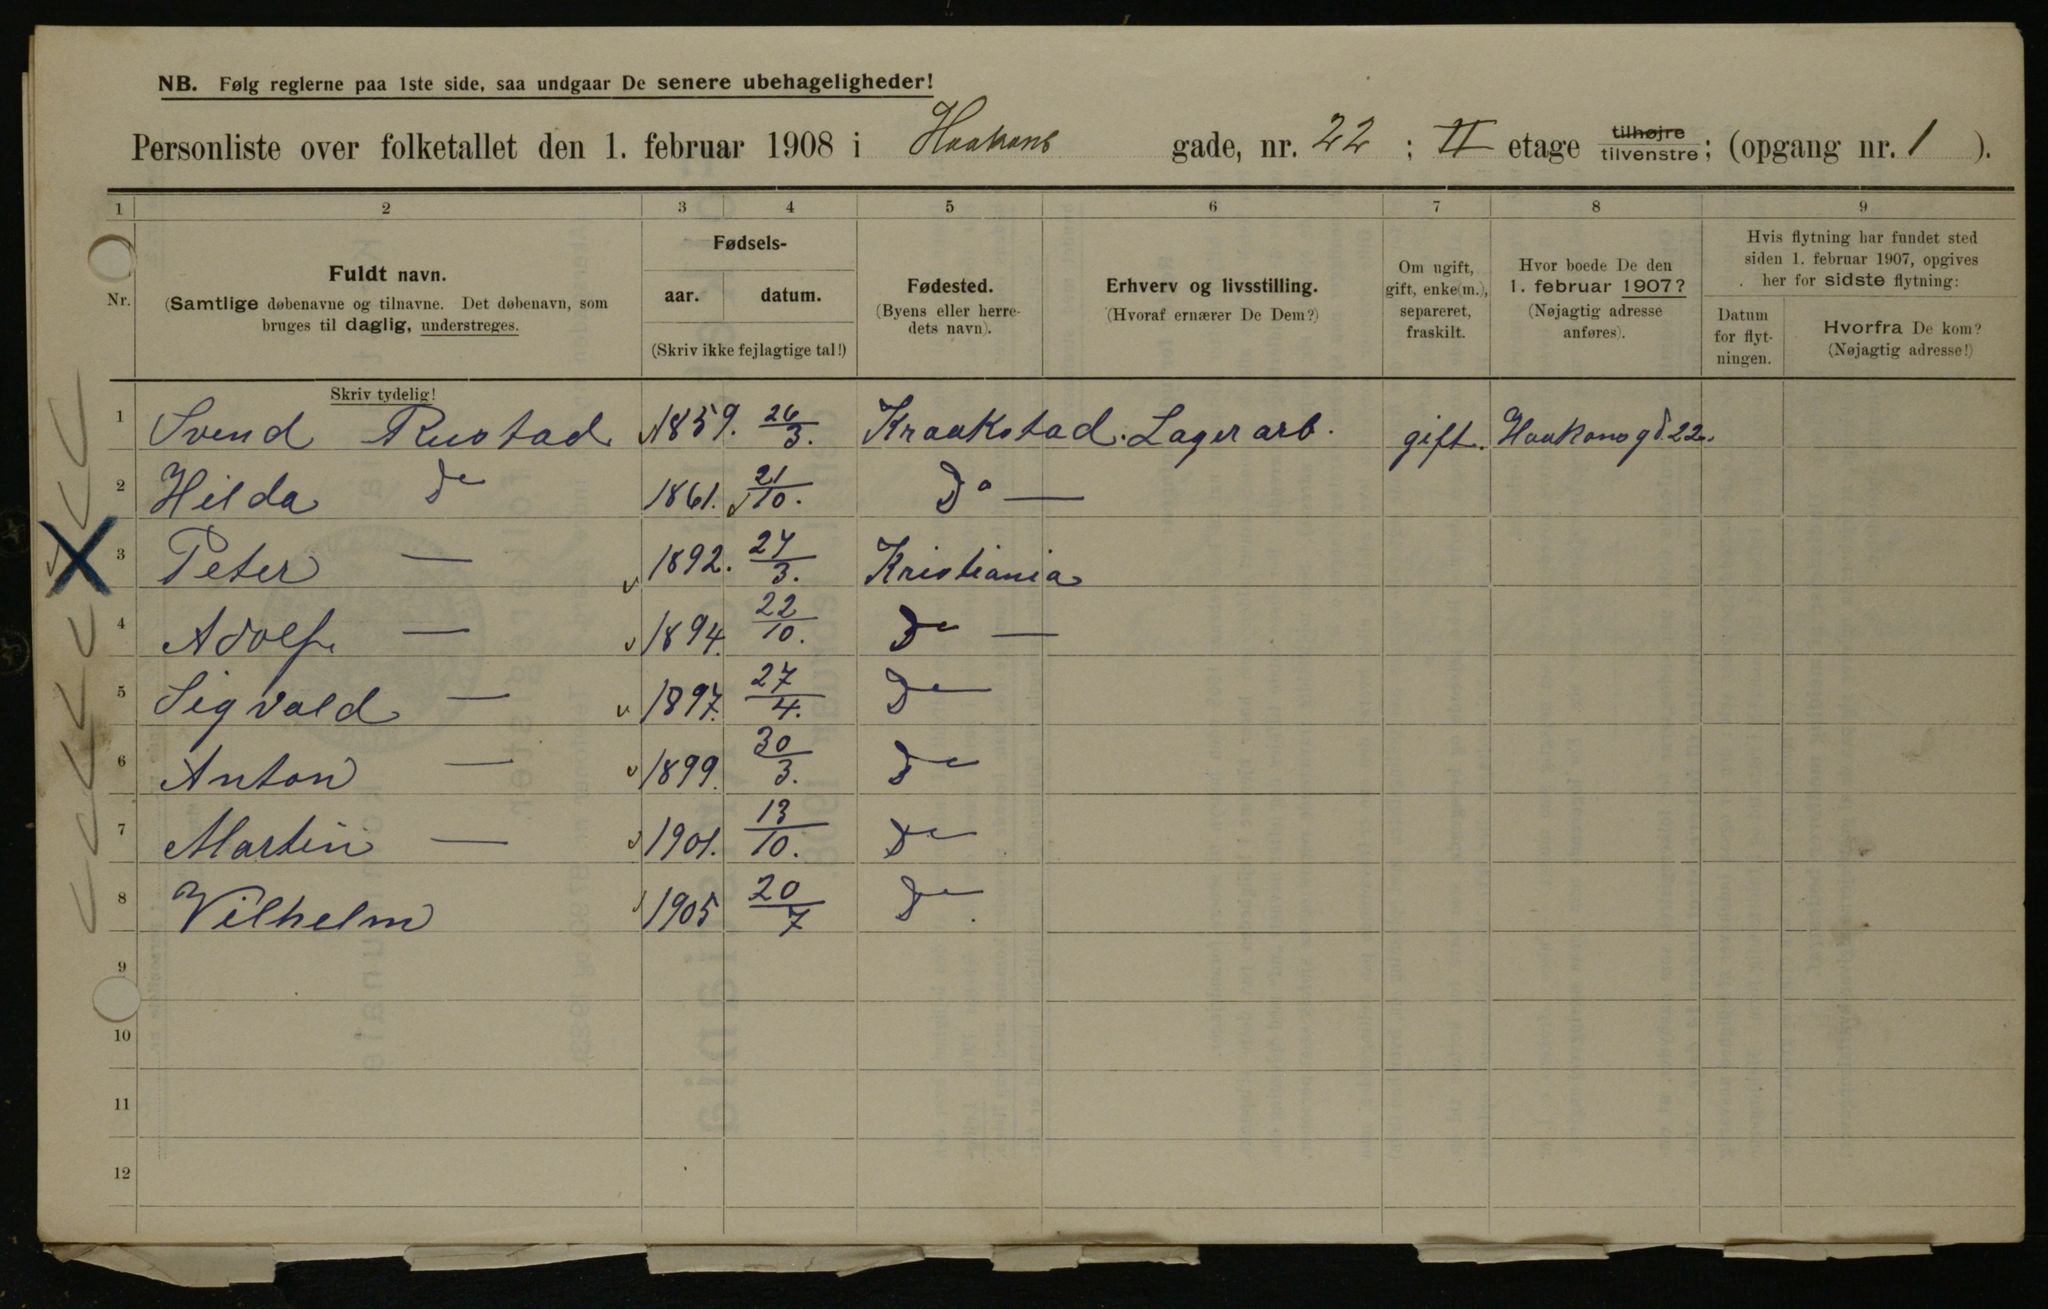 NB. Følg reglerne paa 1ste side, saa undgaar De senere ubehageligheder!
Personliste over folketallet den 1. februar 1908 i Haakons gade, nr. 22 ; II etage tilhøjre tilvenstre; (opgang nr. 1 ).
1 2 3 4 5 6 7 8 9
Nr.
Fuldt navn.
(Samtlige døbenavne og tilnavne. Det døbenavn, som
bruges til daglig, understreges.
Fødsels-
aar. datum.
(Skriv ikke fejlagtige tal!)
Fødested.
(Byens eller herre-
dets navn).
Erhverv og livsstilling.
(Hvoraf ernærer De Dem?)
Om ugift,
gift, enke(m.),
separeret,
fraskilt.
Hvor boede De den
1. februar 1907?
(Nøjagtig adresse
anføres).
Hvis flytning har fundet sted
siden 1. februar 1907, opgives
her for sidste flytning:
Datum
for flyt-
ningen.
Hvorfra De kom?
(Nøjagtig adresse!)
Skriv tydelig!
1 Svend Rustad 1859. 26/3. Kraakstad. Lagerarb. gift. Haakonsgd. 22.
2 Hilda Do 1861. 21/10. Do —
3 Peter — 1892. 27/3. Kristiania
4 Adolf. — 1894. 22/10. Do —
5 Sigvald — 1897. 27/4. Do
6 Anton — 1899. 30/3. Do
7 Martin — 1901. 13/10. Do
8 Vilhelm 1905 20/7 Do
9
10
11
12